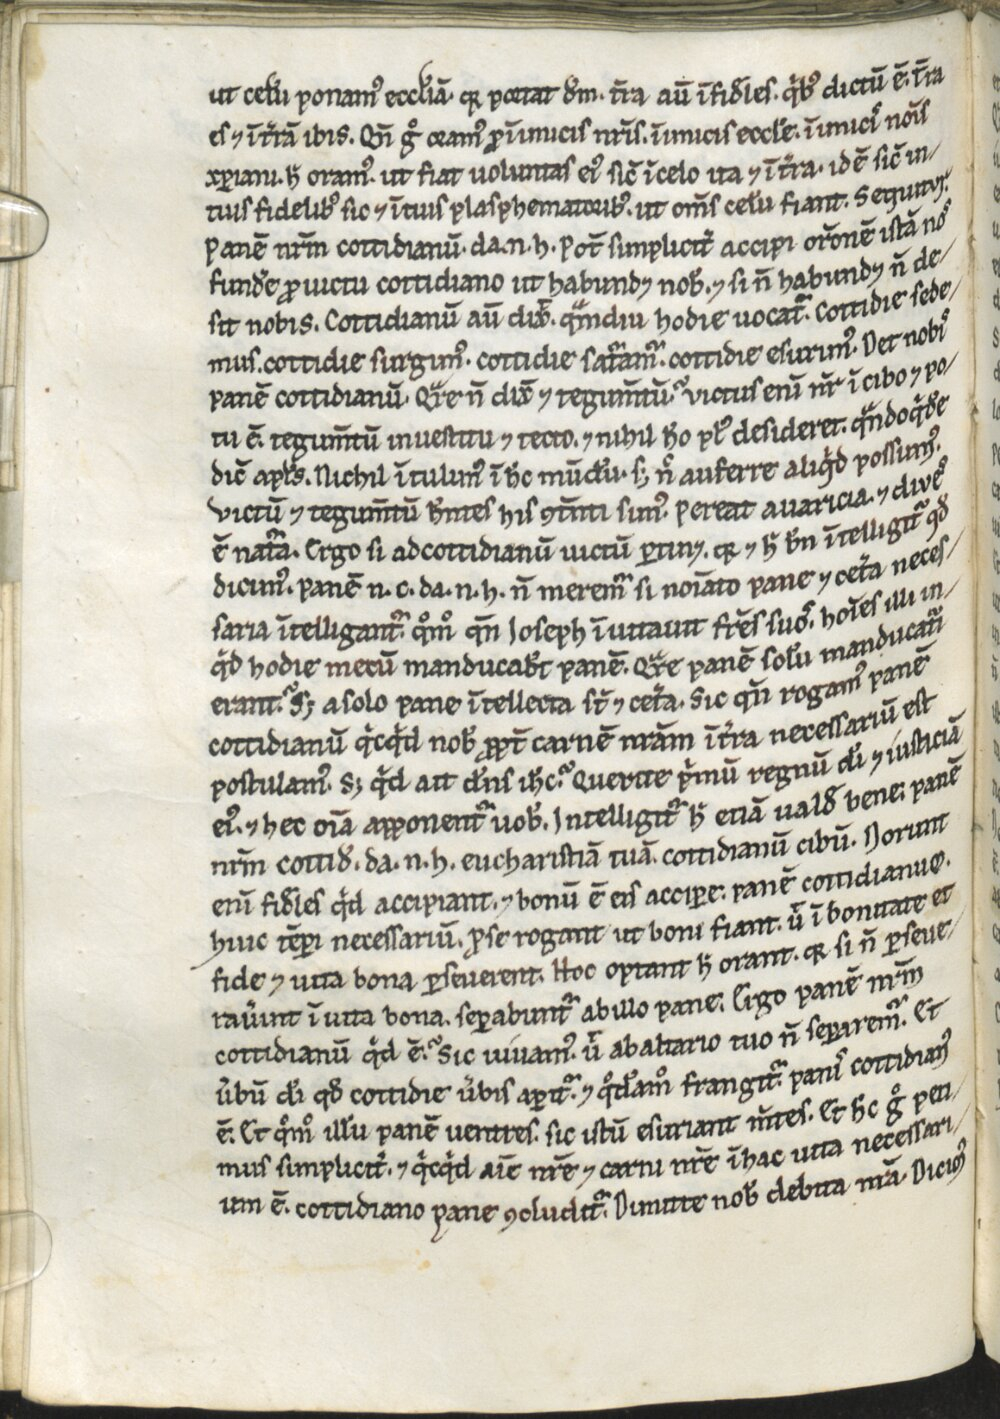 ut celũ ponam᷒ ecclẽiã. q̃ portat dm̃. t̃ra aũ ĩfid̃les. q̃b᷒ dictũ ẽ. t̃ra
es ⁊ ĩt̃rã ibis. Qñ g̊ oram᷒ p̃ ĩimicis nr̃is. ĩimicis eccl̃e. ĩimici᷒ noĩs
xp̃iani. h̃ oram᷒. ut fiat uoluntas ei᷒ sic̃ ĩcelo ita ⁊ ĩt̃ra. id ẽ sic̃ in
tuis fidelib᷒ sic ⁊ ĩtuis blasphematorib᷒. ut om̃s celũ fiant. Sequitur᷒.
panẽ nr̃m cottidianũ. da.n.h. Pot̃ simplicit̃ accipi or̃onẽ istã nos᷒
fund̃e p̃ uictu cottidiano ut habundꝫ nob̃. ⁊ si ñ habundꝫ ñ de
sit nobis. Cottidianũ aũ dix̃. qͣmdiu hodie uocat̃. Cottidie sede
mus. cottidie surgim᷒. cottidie satiam̃. cottidie esurim᷒. Det nobi᷒
panẽ cottidianũ. Qͣre ñ dix̃ ⁊ tegum̃tũ? victus enĩ nr̃ ĩ cibo ⁊ po
tu ẽ. tegum̃tũ in uestitu ⁊ tecto. ⁊ nihil h̃o pl᷒ desideret. qͣndoqͥde
dic̃ apl̃s. Nichil ĩtulim᷒ ĩ hc̃ mũdũ. sꝫ n̊ auferre aliqͥd possim᷒.
victũ ⁊ tegum̃tũ h̃ntes his ꝯtẽti sim᷒. Pereat auaricia. ⁊ dive᷒
ẽ nat̃a. Ergo si ad cottidianũ uictũ ꝑtinꝫ. q̃ ⁊ h̃ bñ ĩtelligit̃ qd̃
dicim᷒. panẽ n.c.da.n.h. ñ merem̃ si noĩato pane ⁊ cet̃a neces
saria ĩtelligant̃. qͦm̊ qñ Joseph ĩuitauit fr̃es suos᷒. hoĩes illi in
qͥd hodie mecũ manducab̃t panẽ. Qͣre panẽ solũ manducatũ
erant? Sꝫ a solo pane ĩtellecta st̃ ⁊ cet̃a. Sic qñ rogam᷒ panẽ
cottidianũ qͥcqͥd nob̃ ꝓpt̃ carnẽ nrãm ĩt̃ra necessariũ est
postulam᷒. Sꝫ qͥd ait dñs ihc̃? Querite pͥmũ regnũ dĩ ⁊ iusticiã
ei᷒. ⁊ hec oĩa apponent̃ uob̃. Intelligit̃ h̃ etiã uald̃ bene: panẽ
nr̃m cottid̃. da.n.h. eucharistiã tuã. cottidianũ cibũ. Norunt
enĩ fid̃les qͥd accipiant. ⁊ bonũ ẽ eis accipe: panẽ cottidianũ.
huic tẽpi necessariũ. ꝓ se rogant ut boni fiant. ũ ĩ bonitate et
fide ⁊ uita bona ꝑseuerent. Hoc optant h̃ orant. q̃ si ñ ꝑseue
rau̇int ĩ uita bona. seꝑabunt̃ ab illo pane. Ergo panẽ nr̃m
cottidianũ qͥd ẽ? Sic uiuam᷒. ũ ab altario tuo ñ seꝑarem̃. Et
ũbũ dĩ qd̃ cottidie ũbis aꝑit̃. ⁊ qͦdãm̊ frangit̃. pani᷒ cottidian᷒
ẽ. Et qͦm̊ illũ panẽ uentres. sic istũ esuriant m̃tes. Et h̃c g̊ peti
mus simplicit̃. ⁊ qͥcqͥd aĩe nr̃e ⁊ carni nr̃e ĩ hac uita necessari
um ẽ. cottidiano pane ꝯcludit̃. Dimitte nob̃ debita nr̃a. Dicim᷒